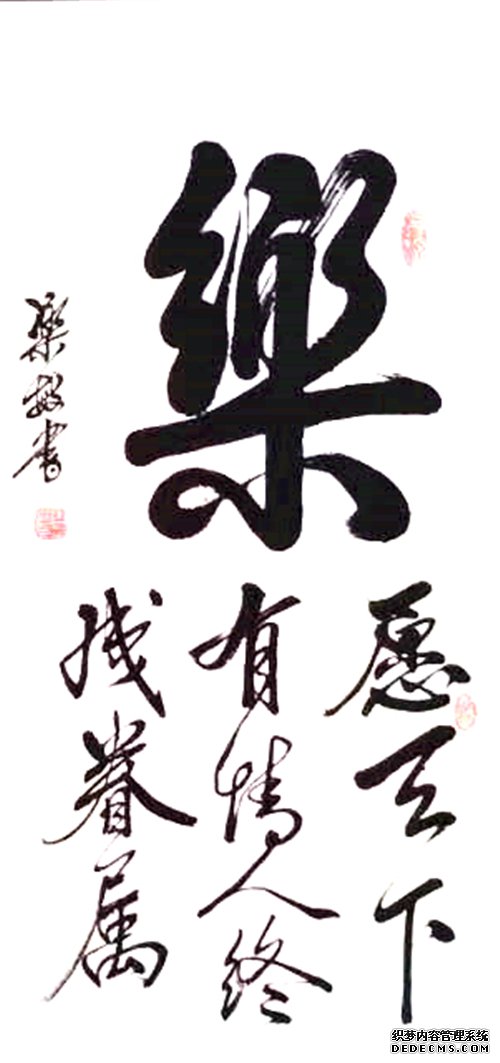 樂
愿天下
有情人终
成眷属
樂 书
织梦内容管理系统
DEDECMS.COM